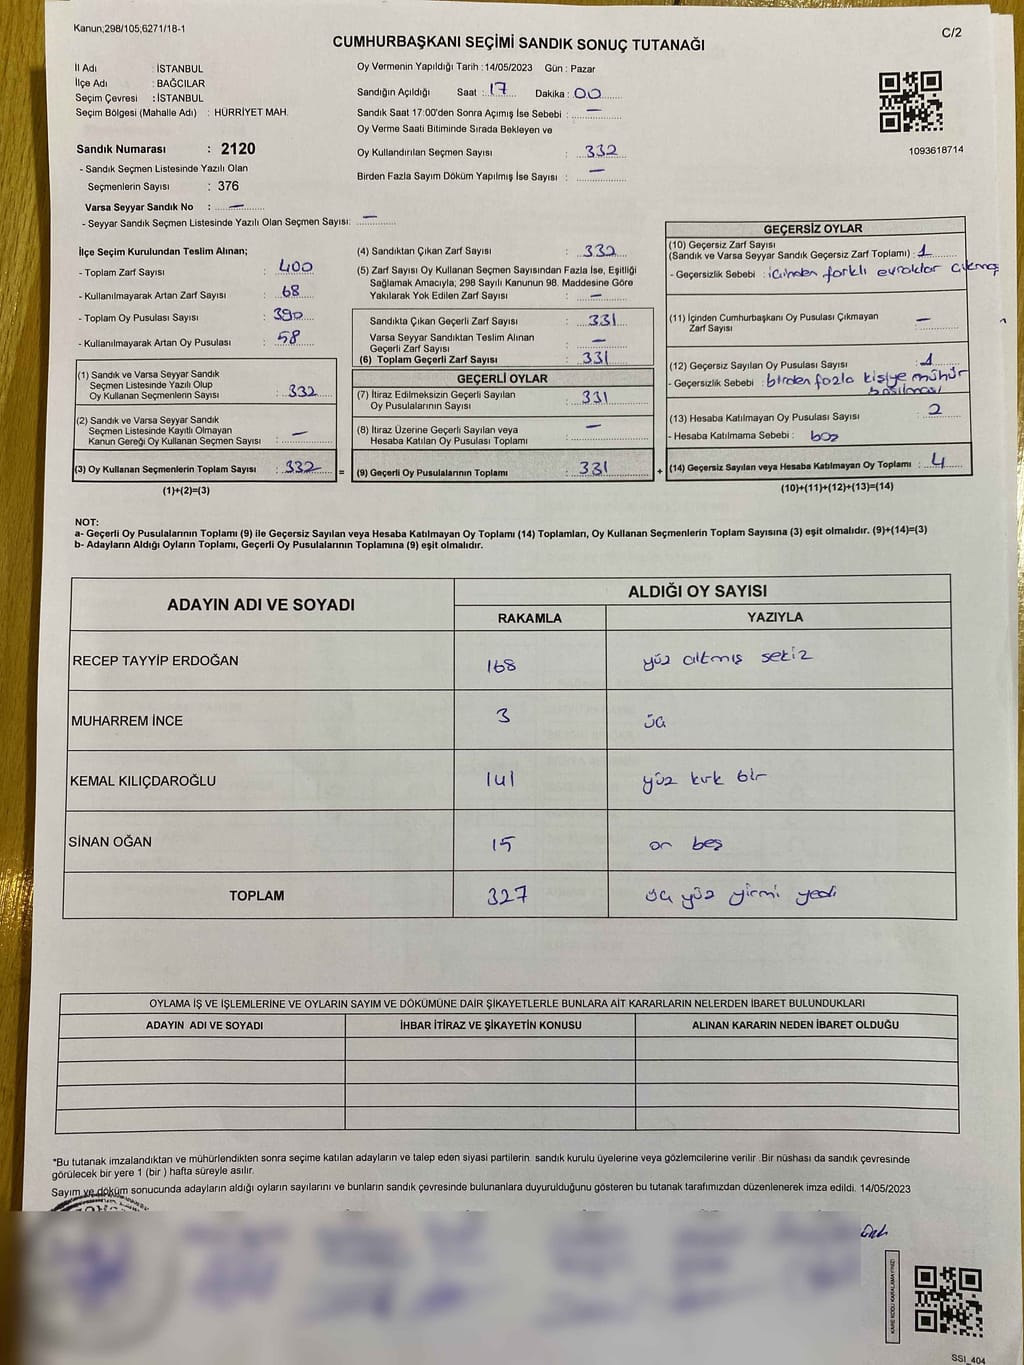 Kanun;298/105;6271/18-1
C/2
CUMHURBAŞKANI SEÇİMİ SANDIK SONUÇ TUTANAĞI
İl Adı : İSTANBUL
İlçe Adı : BAĞCILAR
Seçim Çevresi : İSTANBUL
Seçim Bölgesi (Mahalle Adı) : HÜRRİYET MAH.
Sandık Numarası : 2120
- Sandık Seçmen Listesinde Yazılı Olan
Seçmenlerin Sayısı : 376
Varsa Seyyar Sandık No : —
- Seyyar Sandık Seçmen Listesinde Yazılı Olan Seçmen Sayısı: —
Oy Vermenin Yapıldığı Tarih : 14/05/2023 Gün : Pazar
Sandığın Açıldığı Saat : 17 Dakika : 00
Sandık Saat 17:00'den Sonra Açımış İse Sebebi : —
Oy Verme Saati Bitiminde Sırada Bekleyen ve
Oy Kullandırılan Seçmen Sayısı : 332
Birden Fazla Sayım Döküm Yapılmış İse Sayısı : —
1093618714
İlçe Seçim Kurulundan Teslim Alınan;
- Toplam Zarf Sayısı : 400
- Kullanılmayarak Artan Zarf Sayısı : 68
- Toplam Oy Pusulası Sayısı : 390
- Kullanılmayarak Artan Oy Pusulası : 58
(1) Sandık ve Varsa Seyyar Sandık
Seçmen Listesinde Yazılı Olup
Oy Kullanan Seçmenlerin Sayısı : 332
(2) Sandık ve Varsa Seyyar Sandık
Seçmen Listesinde Kayıtlı Olmayan
Kanun Gereği Oy Kullanan Seçmen Sayısı : —
(3) Oy Kullanan Seçmenlerin Toplam Sayısı : 332 =
(1)+(2)=(3)
(4) Sandıktan Çıkan Zarf Sayısı : 332
(5) Zarf Sayısı Oy Kullanan Seçmen Sayısından Fazla İse, Eşitliği
Sağlamak Amacıyla; 298 Sayılı Kanunun 98. Maddesine Göre
Yakılarak Yok Edilen Zarf Sayısı : —
Sandıkta Çıkan Geçerli Zarf Sayısı : 331
Varsa Seyyar Sandıktan Teslim Alınan
Geçerli Zarf Sayısı : —
(6) Toplam Geçerli Zarf Sayısı : 331
GEÇERLİ OYLAR
(7) İtiraz Edilmeksizin Geçerli Sayılan
Oy Pusulalarının Sayısı : 331
(8) İtiraz Üzerine Geçerli Sayılan veya
Hesaba Katılan Oy Pusulası Toplamı : —
(9) Geçerli Oy Pusulalarının Toplamı : 331 +
GEÇERSİZ OYLAR
(10) Geçersiz Zarf Sayısı
(Sandık ve Varsa Seyyar Sandık Geçersiz Zarf Toplamı) : 1
- Geçersizlik Sebebi : içinden farklı evraklar çıkmış
(11) İçinden Cumhurbaşkanı Oy Pusulası Çıkmayan
Zarf Sayısı : —
(12) Geçersiz Sayılan Oy Pusulası Sayısı : 1
- Geçersizlik Sebebi : birden fazla kişiye mühür
basılması
(13) Hesaba Katılmayan Oy Pusulası Sayısı : 2
- Hesaba Katılmama Sebebi : boş
(14) Geçersiz Sayılan veya Hesaba Katılmayan Oy Toplamı : 4
(10)+(11)+(12)+(13)=(14)
NOT:
a- Geçerli Oy Pusulalarının Toplamı (9) ile Geçersiz Sayılan veya Hesaba Katılmayan Oy Toplamı (14) Toplamları, Oy Kullanan Seçmenlerin Toplam Sayısına (3) eşit olmalıdır. (9)+(14)=(3)
b- Adayların Aldığı Oyların Toplamı, Geçerli Oy Pusulalarının Toplamına (9) eşit olmalıdır.
ADAYIN ADI VE SOYADI
ALDIĞI OY SAYISI
RAKAMLA YAZIYLA
RECEP TAYYİP ERDOĞAN 168 yüz altmış sekiz
MUHARREM İNCE 3 üç
KEMAL KILIÇDAROĞLU 141 yüz kırk bir
SİNAN OĞAN 15 on beş
TOPLAM 327 üç yüz yirmi yedi
OYLAMA İŞ VE İŞLEMLERİNE VE OYLARIN SAYIM VE DÖKÜMÜNE DAİR ŞİKAYETLERLE BUNLARA AİT KARARLARIN NELERDEN İBARET BULUNDUKLARI
ADAYIN ADI VE SOYADI İHBAR İTİRAZ VE ŞİKAYETİN KONUSU ALINAN KARARIN NEDEN İBARET OLDUĞU
*Bu tutanak imzalandıktan ve mühürlendikten sonra seçime katılan adayların ve talep eden siyasi partilerin sandık kurulu üyelerine veya gözlemcilerine verilir. Bir nüshası da sandık çevresinde
görülecek bir yere 1 (bir) hafta süreyle asılır.
Sayım ve döküm sonucunda adayların aldığı oyların sayılarını ve bunların sandık çevresinde bulunanlara duyurulduğunu gösteren bu tutanak tarafımızdan düzenlenerek imza edildi. 14/05/2023
KARE KODU KARALAMAYINIZ!
SSI_404